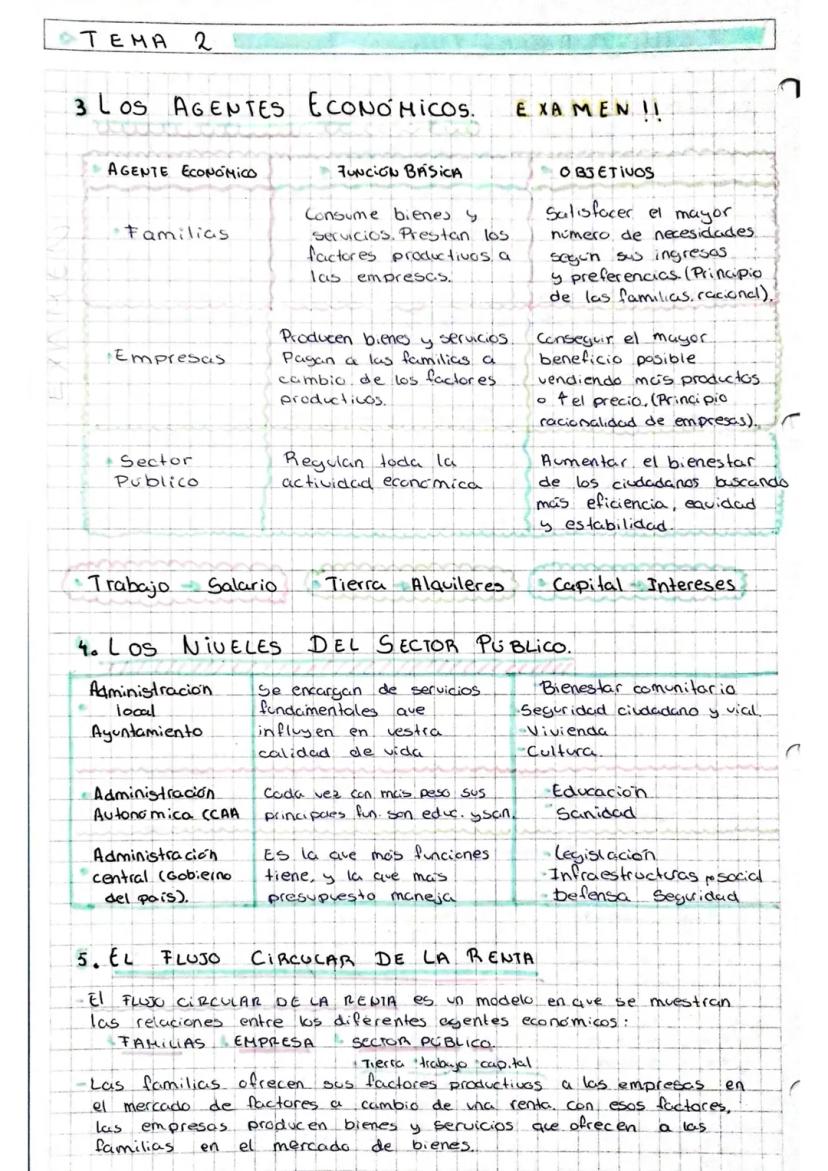 TEMA 2
3 LOS AGENTES ECONÓMICOS. EXAMEN !!
AGENTE ECONÓMICO
FUNCIÓN BÁSICA
OBJETIVOS
Familias
Consume bienes y
servicios. Prestan los
factores productivos a
las empresas.
Satisfacer el mayor
número de necesidades
según sus ingresos
y preferencias. (Principio
de las familias. racional).
Empresas
Producen bienes y servicios.
Pagan a las familias a
cambio de los factores
productivos.
Conseguir el mayor
beneficio posible
vendiendo más productos
o ↑ el precio. (Principio
racionalidad de empresas).
Sector
Público
Regulan toda la
actividad económica
Aumentar el bienestar
de los ciudadanos buscando
más eficiencia, equidad
y estabilidad.
Trabajo → Salario
Tierra → Alquileres
Capital → Intereses
4. LOS NIVELES DEL SECTOR PÚBLICO.
Administración
local
Ayuntamiento
Se encargan de servicios
fundamentales que
influyen en vestra
calidad de vida
Bienestar comunitario
-Seguridad ciudadano y vial.
-Vivienda
-Cultura.
Administración
Autonómica CCAA
Cada vez con más peso sus
principales fun. son educ. y san.
-Educación
Sanidad
Administración
central (Gobierno
del país).
Es la que más funciones
tiene, y la que mas
presupuesto maneja
-Legislación
-Infraestructuras social
-Defensa Seguridad
5. EL FLUJO CIRCULAR DE LA RENTA
- El FLUJO CIRCULAR DE LA RENTA es un modelo en que se muestran
las relaciones entre los diferentes agentes económicos:
FAMILIAS EMPRESA SECTOR PÚBLICO.
Tierra trabajo capital
- Las familias ofrecen sus factores productivos a las empresas en
el mercado de factores a cambio de una renta. con esos factores,
las empresas producen bienes y servicios que ofrecen a las
familias en el mercado de bienes.